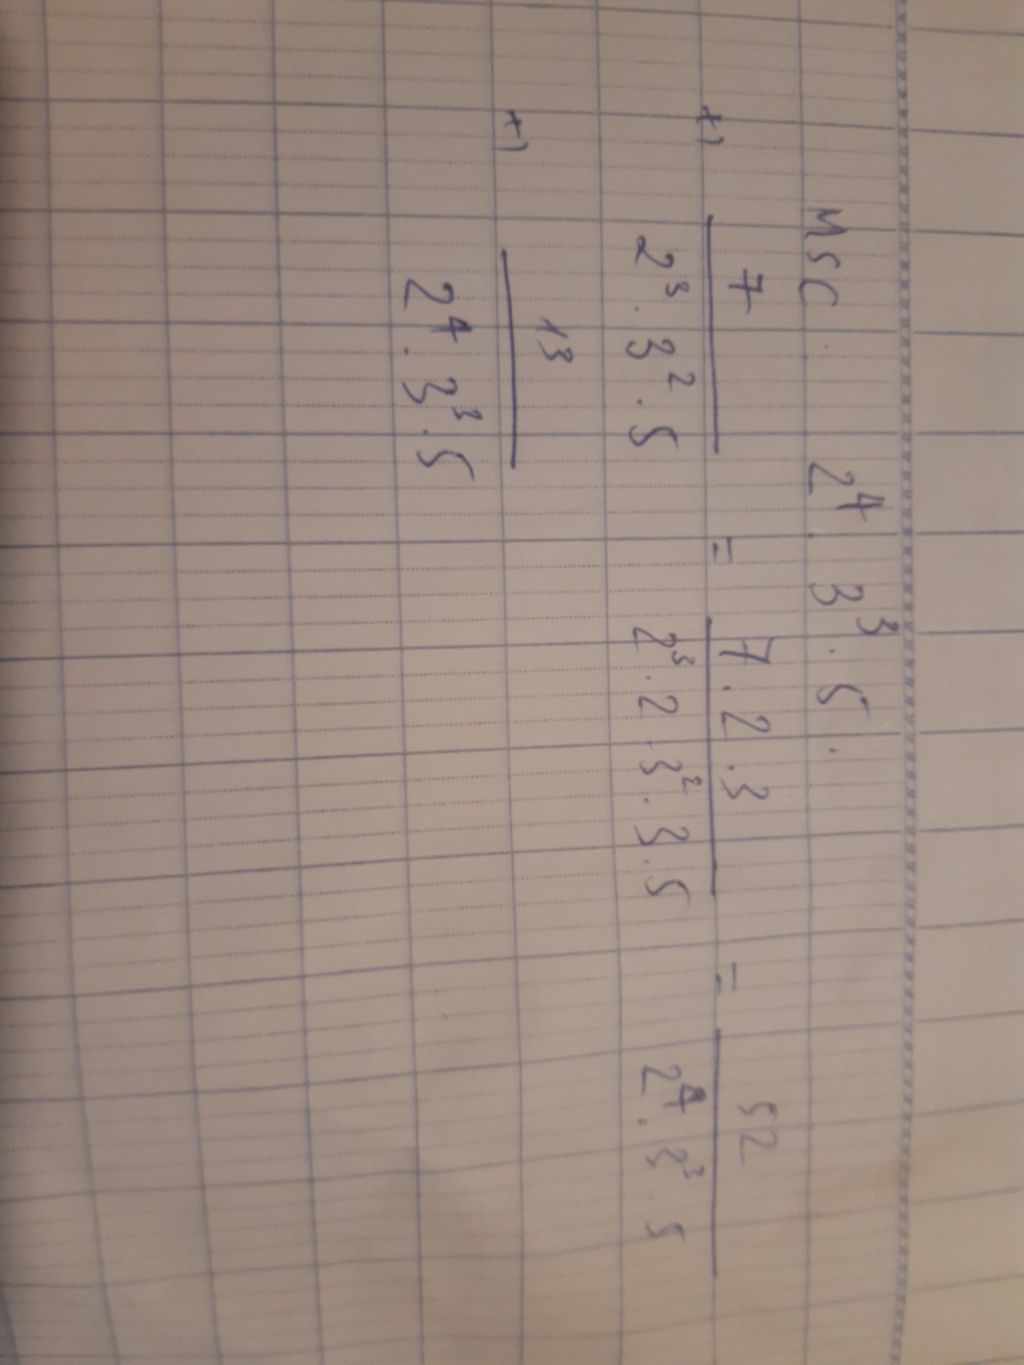 MSC 2⁴. 3³. 5.
+) 7/2³.3².5 = 7.2.3/2³.2.3².3.5 = 52/2⁴.3³.5
+) 13/2⁴.3³.5